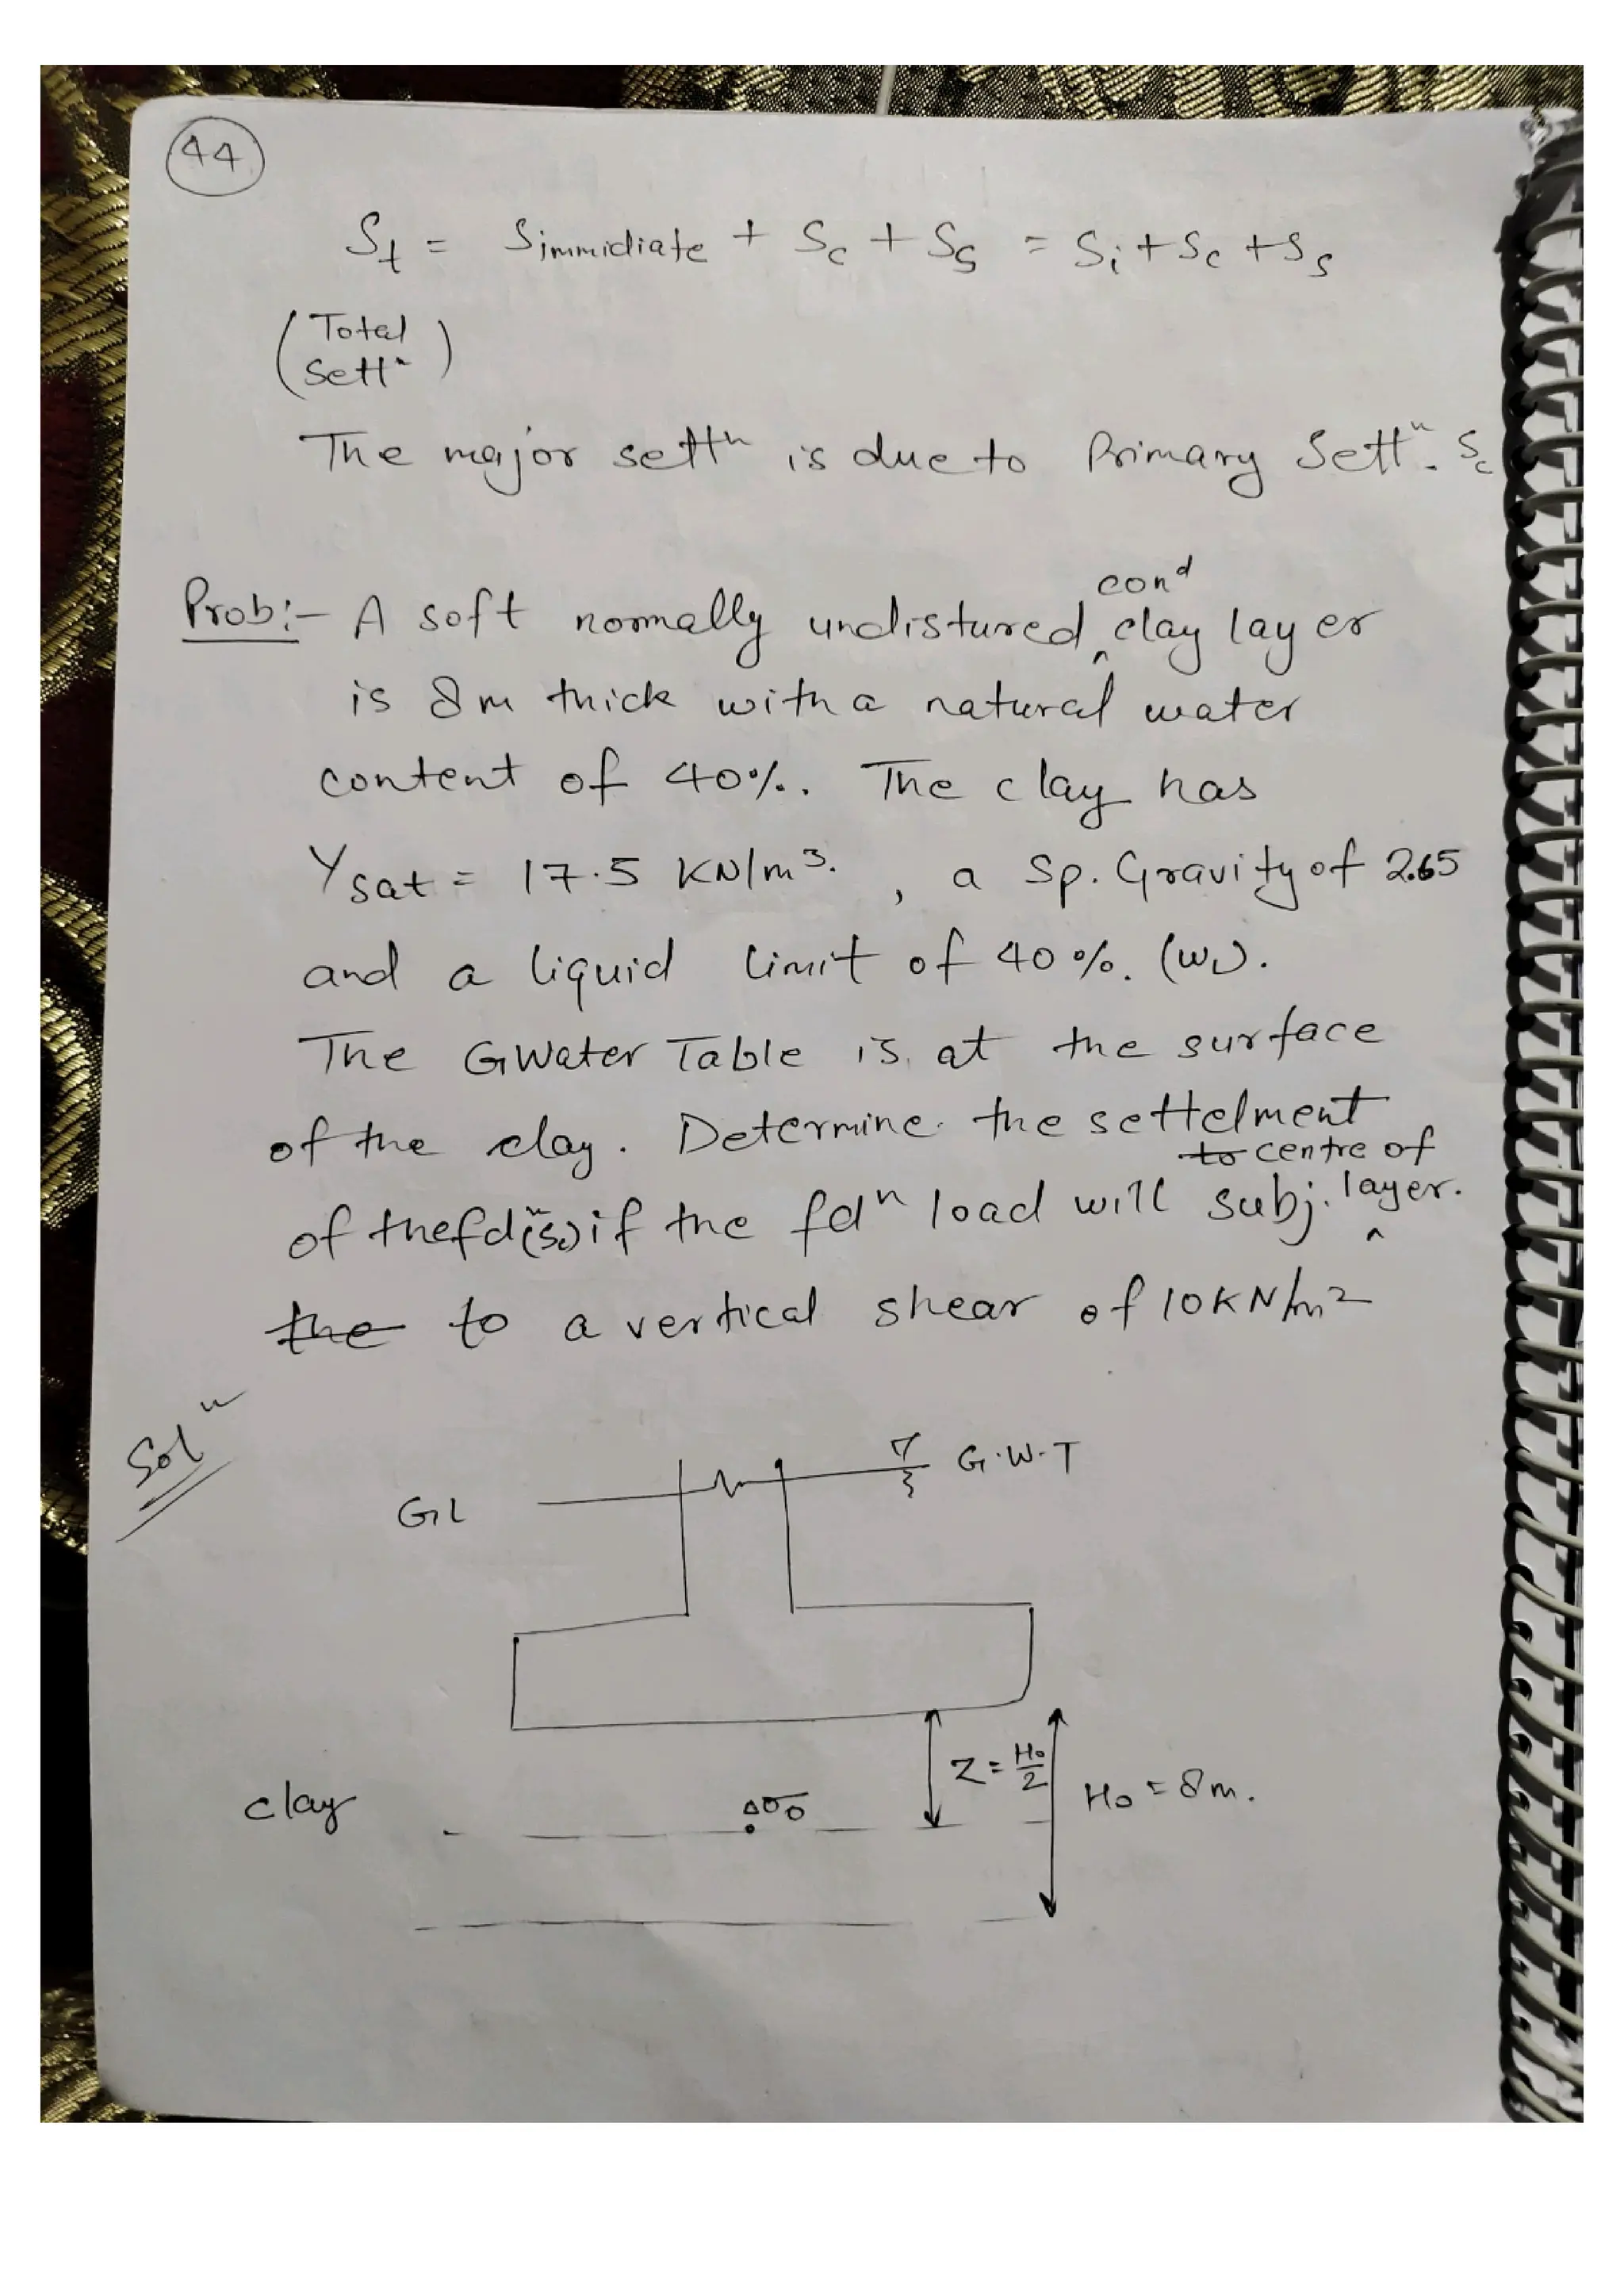 44
St = Simmidiate + Sc + Ss = Si + Sc + Ss
(Total Settⁿ)
The major settⁿ is due to Primary Settⁿ. Sc
Prob:- A soft normally undistured ^ condᵈ clay layer
is 8m thick with a natural water
content of 40%. The clay has
γsat = 17.5 KN/m³. , a Sp. Gravity of 2.65
and a liquid limit of 40%. (wL).
The GWater Table is at the surface
of the clay. Determine the settelment
of the fdⁿ(Sc) if the fdⁿ load will subj. to centre of layer.
the to a vertical shear of 10KN/m²
Solⁿ
G.W.T
GL
Z = H₀/2
H₀ = 8m.
clay
Δσ₀